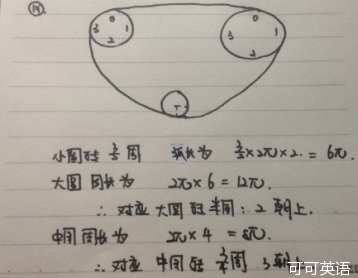 14
0 1 2 3
0 1 2 3
小圆转 周 弧长为 ×2π×2 = 6π.
大圆 周长为 2π×6=12π.
∴ 对应 大圆 转半周: 2 朝上.
中圆 周长为 2π×4 = 8π.
∴ 对应 中圆 转 周 3 朝上.
可可英语